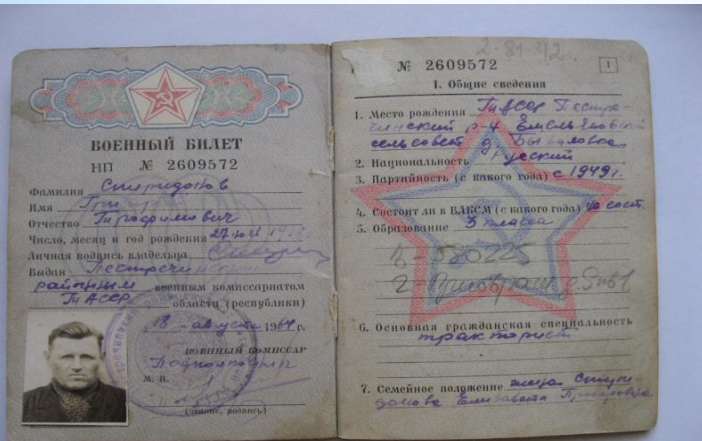 ВОЕННЫЙ БИЛЕТ
НП № 2609572
Фамилия Спиридонов
Имя
Отчество Трофимович
Число, месяц и год рождения 27
Личная подпись владельца
Выдан Пестречинским
районным военным комиссариатом
ТАССР области (республики)
18 августа 1964 г.
ВОЕННЫЙ КОМИССАР
Подполковник
М. П.
(звание, подпись)
2-81-42.
№ 2609572
1
1. Общие сведения
1. Место рождения ТАССР Пестре-
чинский р-н
сельсовет д.
2. Национальность русский
3. Партийность (с какого года) с 1949 г.
4. Состоит ли в ВЛКСМ (с какого года) не сост.
5. Образование 3 класса
6. Основная гражданская специальность
тракторист
7. Семейное положение жена Спири-
донова Елизавета